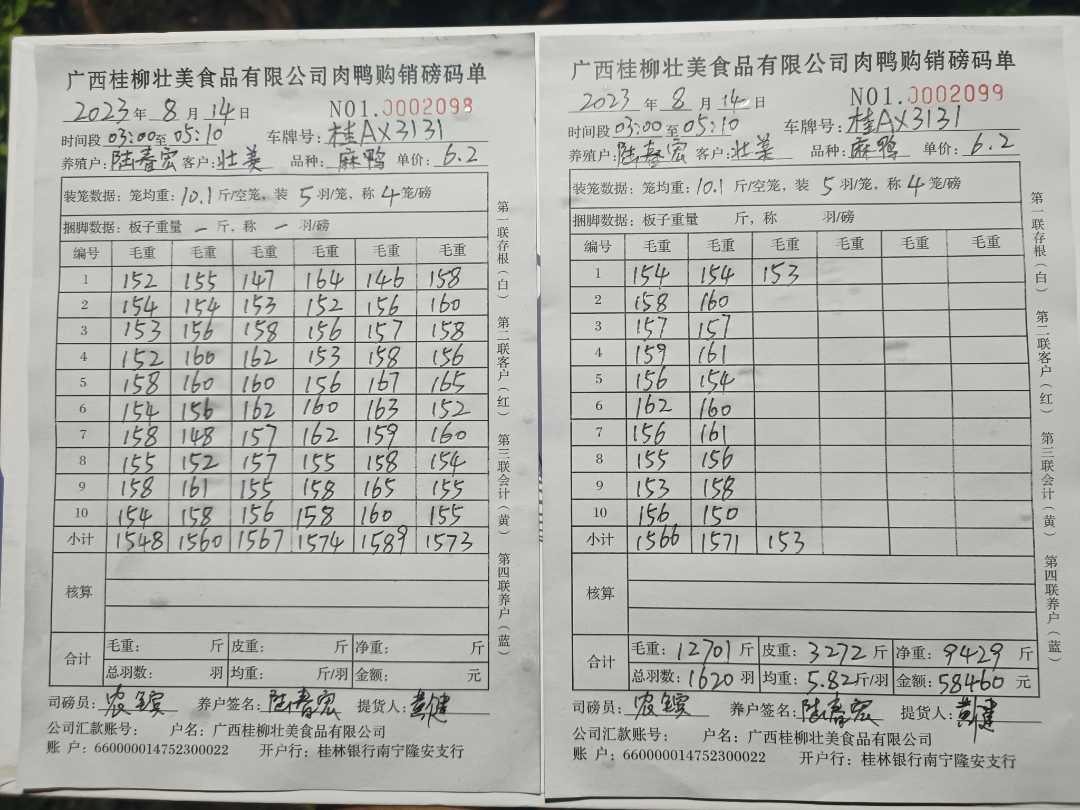 广西桂柳壮美食品有限公司肉鸭购销磅码单
2023年8月14日 NO1.0002098
时间段 03:00至05:10 车牌号: 桂AX3131
养殖户: 陆春宏 客户: 壮美 品种: 麻鸭 单价: 6.2
装笼数据: 笼均重: 10.1 斤/空笼, 装 5 羽/笼, 称 4 笼/磅
捆脚数据: 板子重量 — 斤, 称 — 羽/磅
编号 毛重 毛重 毛重 毛重 毛重 毛重
1 152 155 147 164 146 158
2 154 154 153 152 156 160
3 153 156 158 156 157 158
4 152 160 162 153 158 156
5 158 160 160 156 167 165
6 154 156 162 160 163 152
7 158 148 157 162 159 160
8 155 152 157 155 158 154
9 158 161 155 158 165 155
10 154 158 156 158 160 155
小计 1548 1560 1567 1574 1589 1573
核算
合计 毛重: 斤 皮重: 斤 净重: 斤
总羽数: 羽 均重: 斤/羽 金额: 元
司磅员: 农 养户签名: 陆春宏 提货人: 黄健
公司汇款账号: 户名: 广西桂柳壮美食品有限公司
账 户: 660000014752300022 开户行: 桂林银行南宁隆安支行
第一联存根(白) 第二联客户(红) 第三联会计(黄) 第四联养户(蓝)
广西桂柳壮美食品有限公司肉鸭购销磅码单
2023年8月14日 NO1.0002099
时间段 03:00至05:10 车牌号: 桂AX3131
养殖户: 陆春宏 客户: 壮美 品种: 麻鸭 单价: 6.2
装笼数据: 笼均重: 10.1 斤/空笼, 装 5 羽/笼, 称 4 笼/磅
捆脚数据: 板子重量 斤, 称 羽/磅
编号 毛重 毛重 毛重 毛重 毛重 毛重
1 154 154 153
2 158 160
3 157 157
4 159 161
5 156 154
6 162 160
7 156 161
8 155 156
9 153 158
10 156 150
小计 1566 1571 153
核算
合计 毛重: 12701 斤 皮重: 3272 斤 净重: 9429 斤
总羽数: 1620 羽 均重: 5.82斤/羽 金额: 58460 元
司磅员: 农 养户签名: 陆春宏 提货人: 黄健
公司汇款账号: 户名: 广西桂柳壮美食品有限公司
账 户: 660000014752300022 开户行: 桂林银行南宁隆安支行
第一联存根(白) 第二联客户(红) 第三联会计(黄) 第四联养户(蓝)